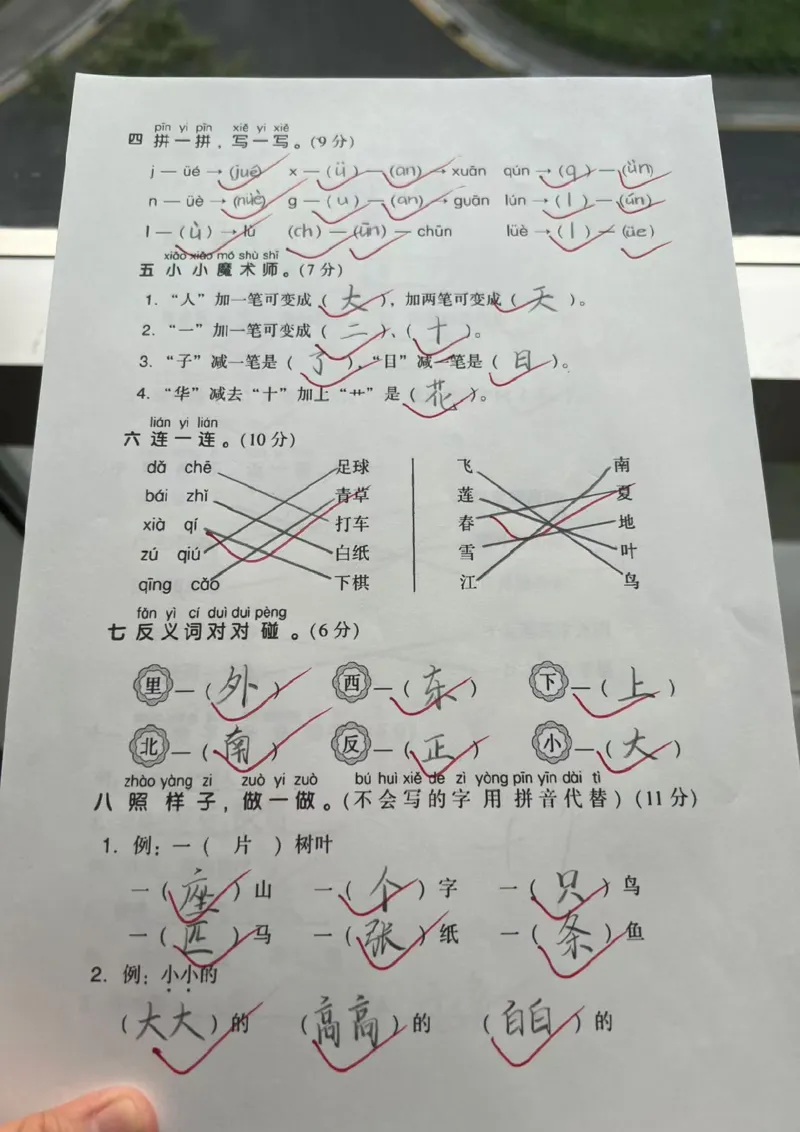 pīn yi pīn xiě yi xiě
四 拼一拼，写一写。(9分)
j — üé → (jué) x — (ü) — (an) → xuān qún → (q) — (ún)
n — üè → (nüè) g — (u) — (an) → guān lún → (l) — (ún)
l — (ù) → lú (ch) — (ūn) — chūn lüè → (l) — (üe)
xiǎo xiǎo mó shù shī
五 小小魔术师。(7分)
1. “人”加一笔可变成（大），加两笔可变成（天）。
2. “一”加一笔可变成（二）、（十）。
3. “子”减一笔是（了），“目”减一笔是（日）。
4. “华”减去“十”加上“艹”是（花）。
lián yi lián
六 连一连。(10分)
dǎ chē 足球 飞 南
bái zhǐ 青草 莲 夏
xià qí 打车 春 地
zú qiú 白纸 雪 叶
qīng cǎo 下棋 江 鸟
fǎn yì cí duì duì pèng
七 反义词对对碰。(6分)
里—（外） 西—（东） 下—（上）
北—（南） 反—（正） 小—（大）
zhào yàng zi zuò yi zuò bú huì xiě de zì yòng pīn yīn dài tì
八 照样子，做一做。(不会写的字用拼音代替)(11分)
1. 例：一（片）树叶
一（座）山 一（个）字 一（只）鸟
一（匹）马 一（张）纸 一（条）鱼
2. 例：小小的
（大大）的 （高高）的 （白白）的